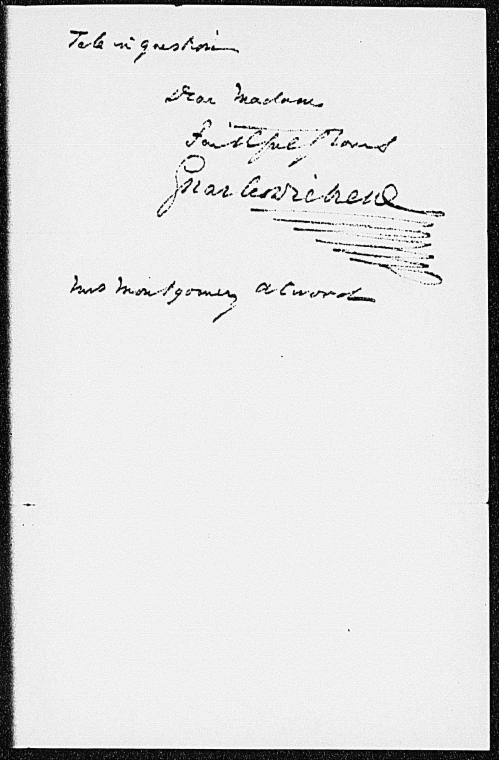 Tale in question
Dear Madam
Faithfully Yours
Charles Dickens
Mrs Montgomery Atwood